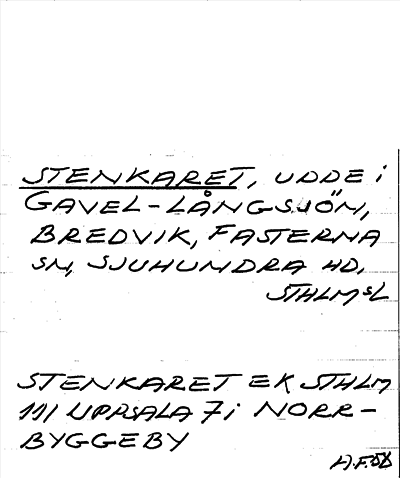 STENKARET, UDDE i
GAVEL-LÅNGSJÖN,
BREDVIK, FASTERNA
SN, SJUHUNDRA HD,
STHLMSL
STENKARET EK STHLM
111 UPPSALA 7i NORR-
BYGGEBY
H.F.58